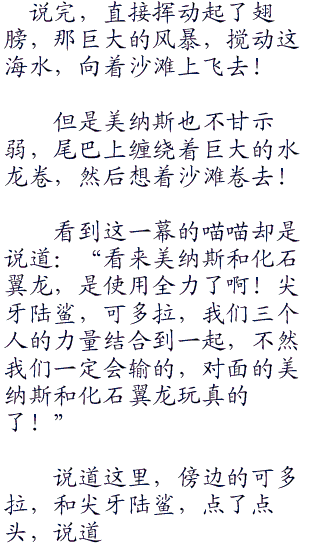 说完，直接挥动起了翅
膀，那巨大的风暴，搅动这
海水，向着沙滩上飞去！
但是美纳斯也不甘示
弱，尾巴上缠绕着巨大的水
龙卷，然后想着沙滩卷去！
看到这一幕的喵喵却是
说道：“看来美纳斯和化石
翼龙，是使用全力了啊！尖
牙陆鲨，可多拉，我们三个
人的力量结合到一起，不然
我们一定会输的，对面的美
纳斯和化石翼龙玩真的
了！”
说道这里，傍边的可多
拉，和尖牙陆鲨，点了点
头，说道